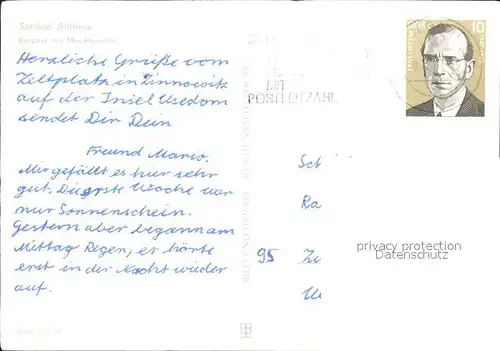 Seebad Ahlbeck
Herzliche Grüße vom
Zeltplatz in Zinnowitz
auf der Insel Usedom
sendet Dir Dein
Freund Marco.
Mir gefällt es hier sehr
gut. Die erste Woche war
nur Sonnenschein.
Gestern aber begann am
Mittag Regen, er hörte
erst in der Nacht wieder
auf.
MIT
POSTLEITZAHL
10
Sch
Ra
95 Ze
privacy protection
Datenschutz